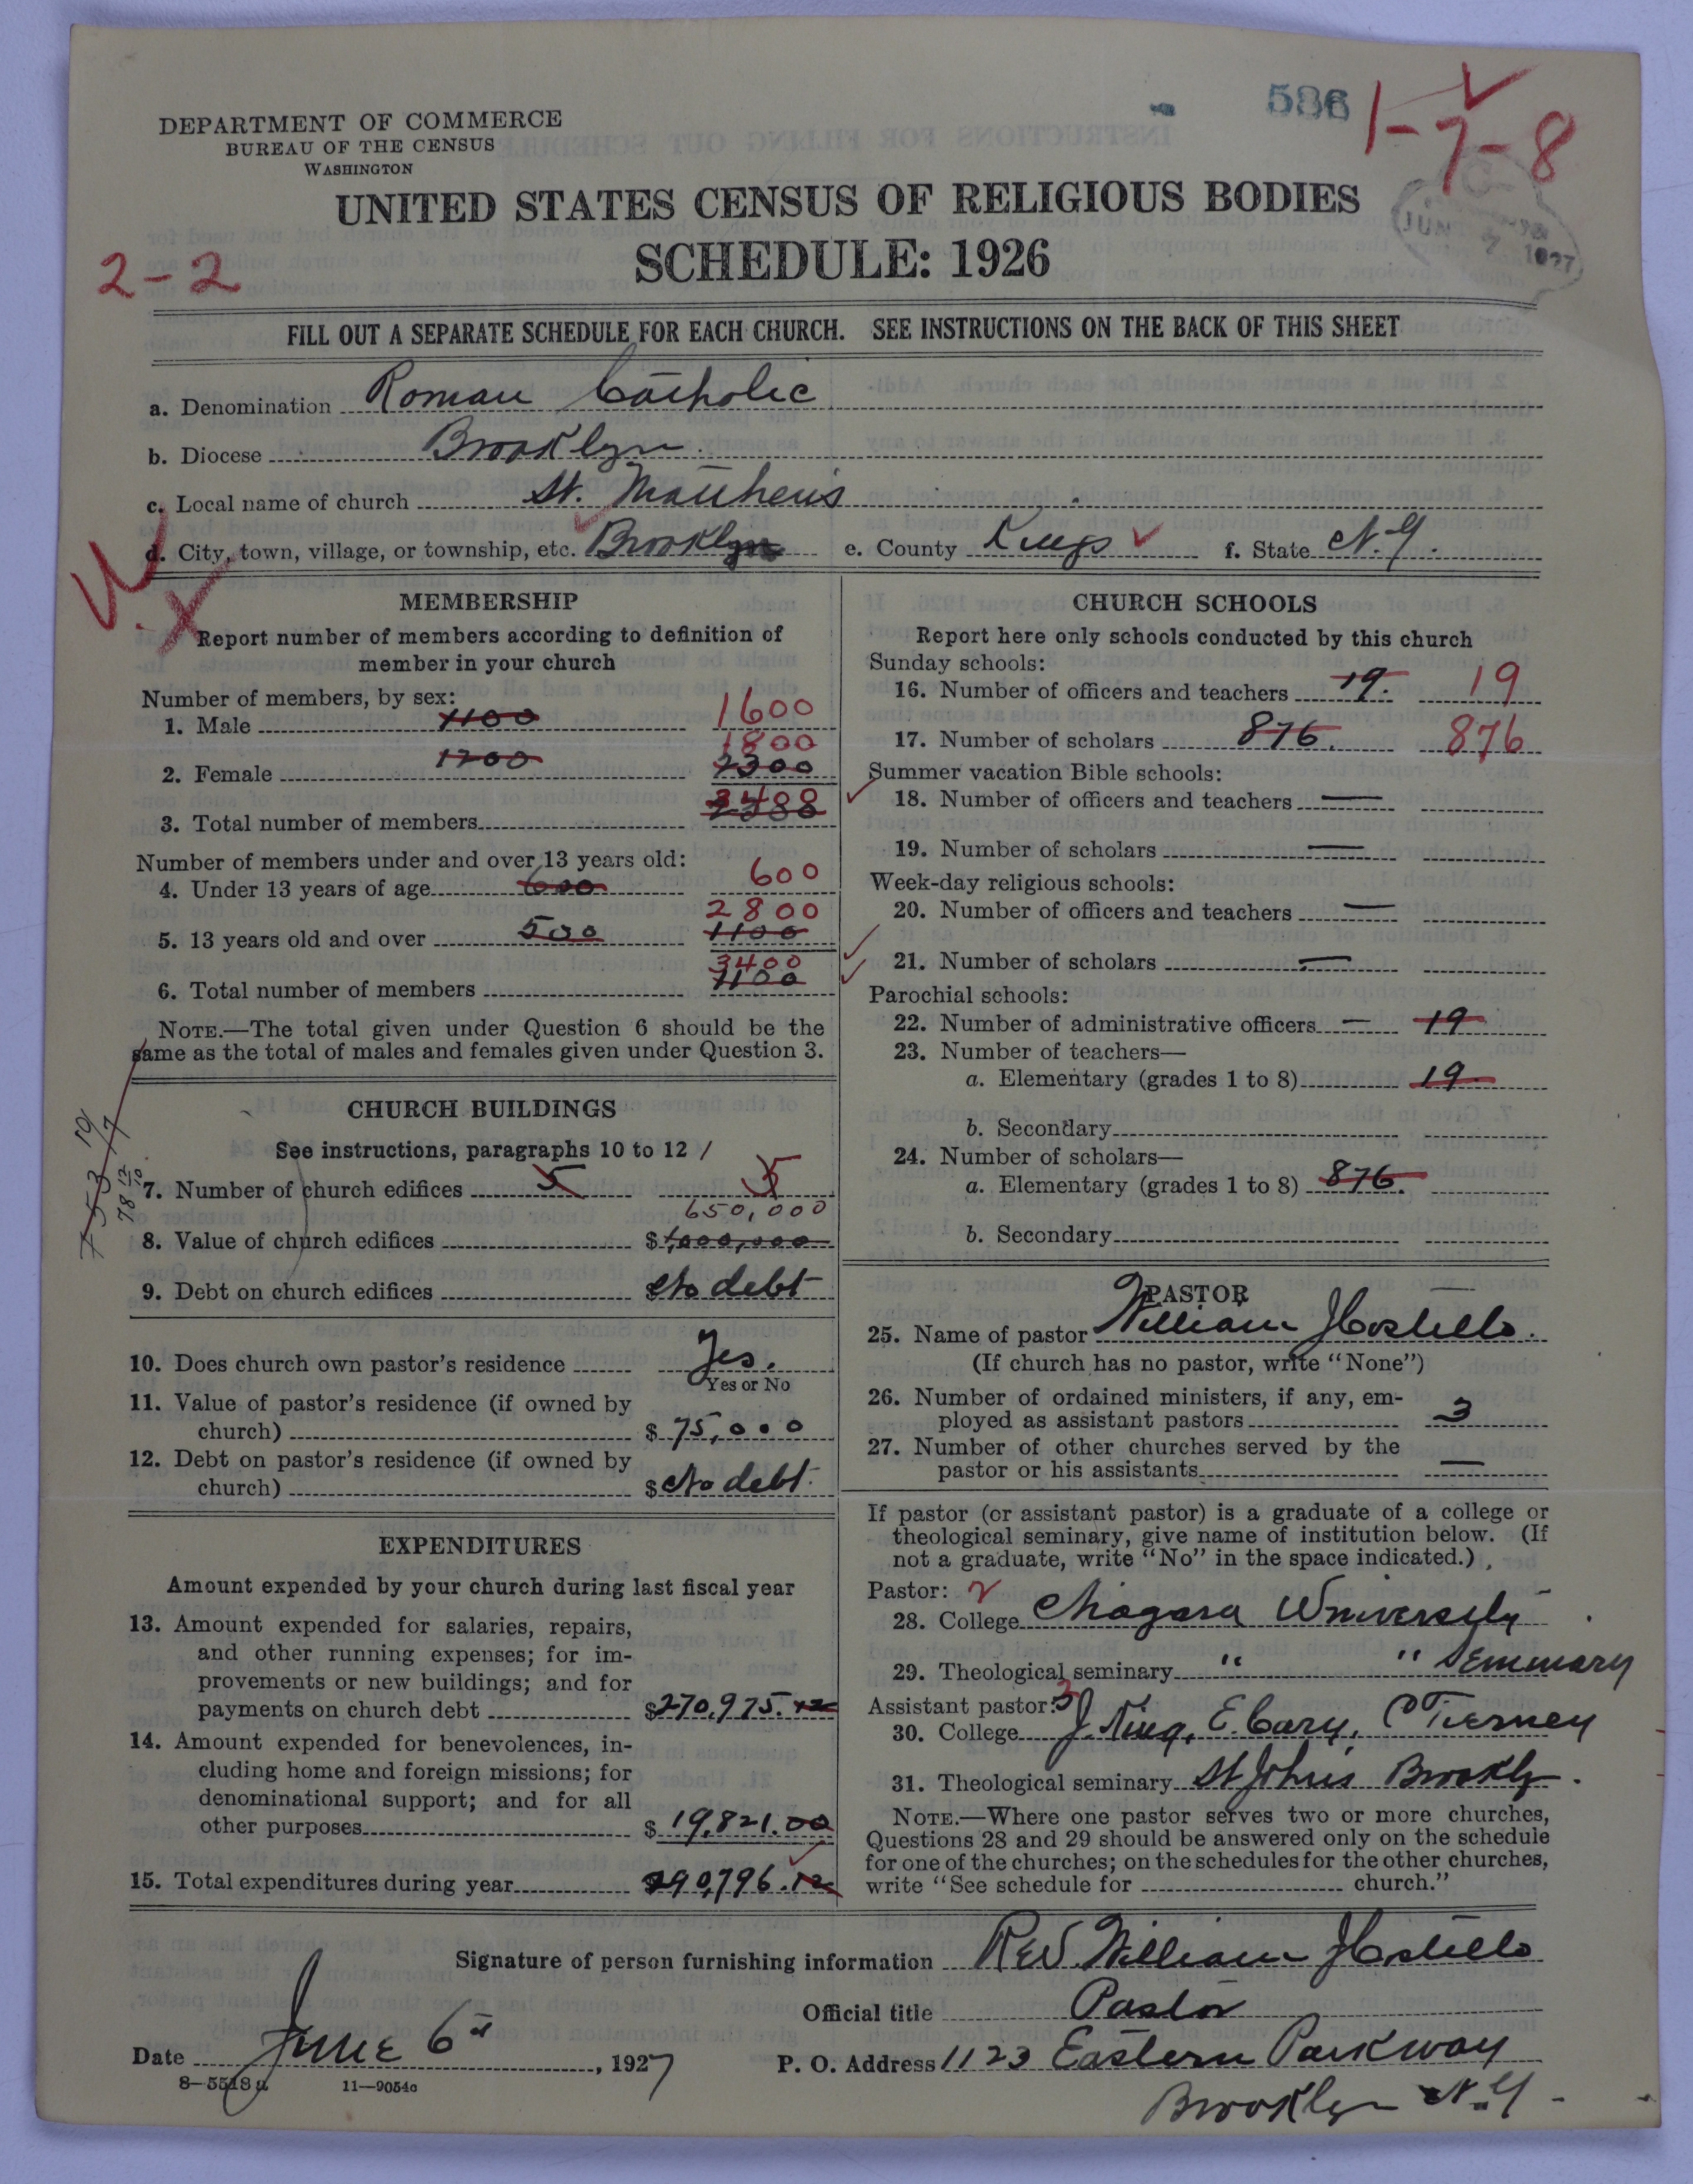 586
1-7-8
DEPARTMENT OF COMMERCE
BUREAU OF THE CENSUS
WASHINGTON
UNITED STATES CENSUS OF RELIGIOUS BODIES
SCHEDULE: 1926
JUN 7 1927
2-2
FILL OUT A SEPARATE SCHEDULE FOR EACH CHURCH. SEE INSTRUCTIONS ON THE BACK OF THIS SHEET
a. Denomination Roman Catholic
b. Diocese Brooklyn
c. Local name of church St. Matthews
d. City, town, village, or township, etc. Brooklyn e. County Kings f. State N.Y.
MEMBERSHIP
Report number of members according to definition of
member in your church
Number of members, by sex:
1. Male 1100 1600
1800
2. Female 1200 2300
3400
3. Total number of members
Number of members under and over 13 years old:
4. Under 13 years of age 600 600
2800
5. 13 years old and over 500 1100
3400
6. Total number of members 1100
NOTE.—The total given under Question 6 should be the
same as the total of males and females given under Question 3.
CHURCH BUILDINGS
See instructions, paragraphs 10 to 12
7. Number of church edifices 5 5
650,000
8. Value of church edifices $1,000,000
9. Debt on church edifices No debt
10. Does church own pastor's residence Yes.
Yes or No
11. Value of pastor's residence (if owned by
church) $75,000
12. Debt on pastor's residence (if owned by
church) $No debt
EXPENDITURES
Amount expended by your church during last fiscal year
13. Amount expended for salaries, repairs,
and other running expenses; for im-
provements or new buildings; and for
payments on church debt $270,975.12
14. Amount expended for benevolences, in-
cluding home and foreign missions; for
denominational support; and for all
other purposes $19,821.00
15. Total expenditures during year 290,796.12
CHURCH SCHOOLS
Report here only schools conducted by this church
Sunday schools:
16. Number of officers and teachers 19. 19
17. Number of scholars 876. 876
Summer vacation Bible schools:
18. Number of officers and teachers —
19. Number of scholars —
Week-day religious schools:
20. Number of officers and teachers —
21. Number of scholars —
Parochial schools:
22. Number of administrative officers — 19
23. Number of teachers—
a. Elementary (grades 1 to 8) 19
b. Secondary
24. Number of scholars—
a. Elementary (grades 1 to 8) 876.
b. Secondary
PASTOR
25. Name of pastor William J Costello.
(If church has no pastor, write "None")
26. Number of ordained ministers, if any, em-
ployed as assistant pastors 3
27. Number of other churches served by the
pastor or his assistants —
If pastor (or assistant pastor) is a graduate of a college or
theological seminary, give name of institution below. (If
not a graduate, write "No" in the space indicated.)
Pastor:
28. College Niagara University
29. Theological seminary " " Seminary
Assistant pastor: 3
30. College J. King, E. Cary, P Tierney
31. Theological seminary St Johns Brooklyn.
NOTE.—Where one pastor serves two or more churches,
Questions 28 and 29 should be answered only on the schedule
for one of the churches; on the schedules for the other churches,
write "See schedule for church."
Signature of person furnishing information Rev. William J Costello
Official title Pastor
Date June 6th, 1927 P. O. Address 1123 Eastern Parkway
Brooklyn N.Y.
8-5518a 11—9054a